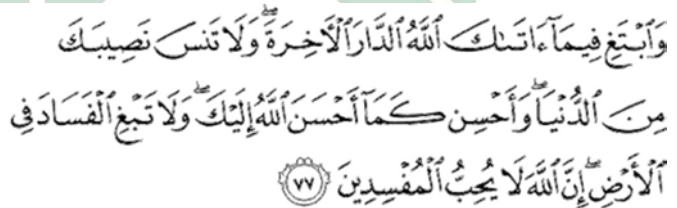 وَٱبْتَغِ فِيمَآ ءَاتَىٰكَ ٱللَّهُ ٱلدَّارَ ٱلْـَٔاخِرَةَ ۖ وَلَا تَنسَ نَصِيبَكَ
مِنَ ٱلدُّنْيَا ۖ وَأَحْسِن كَمَآ أَحْسَنَ ٱللَّهُ إِلَيْكَ ۖ وَلَا تَبْغِ ٱلْفَسَادَ فِى
ٱلْأَرْضِ ۖ إِنَّ ٱللَّهَ لَا يُحِبُّ ٱلْمُفْسِدِينَ ٧٧